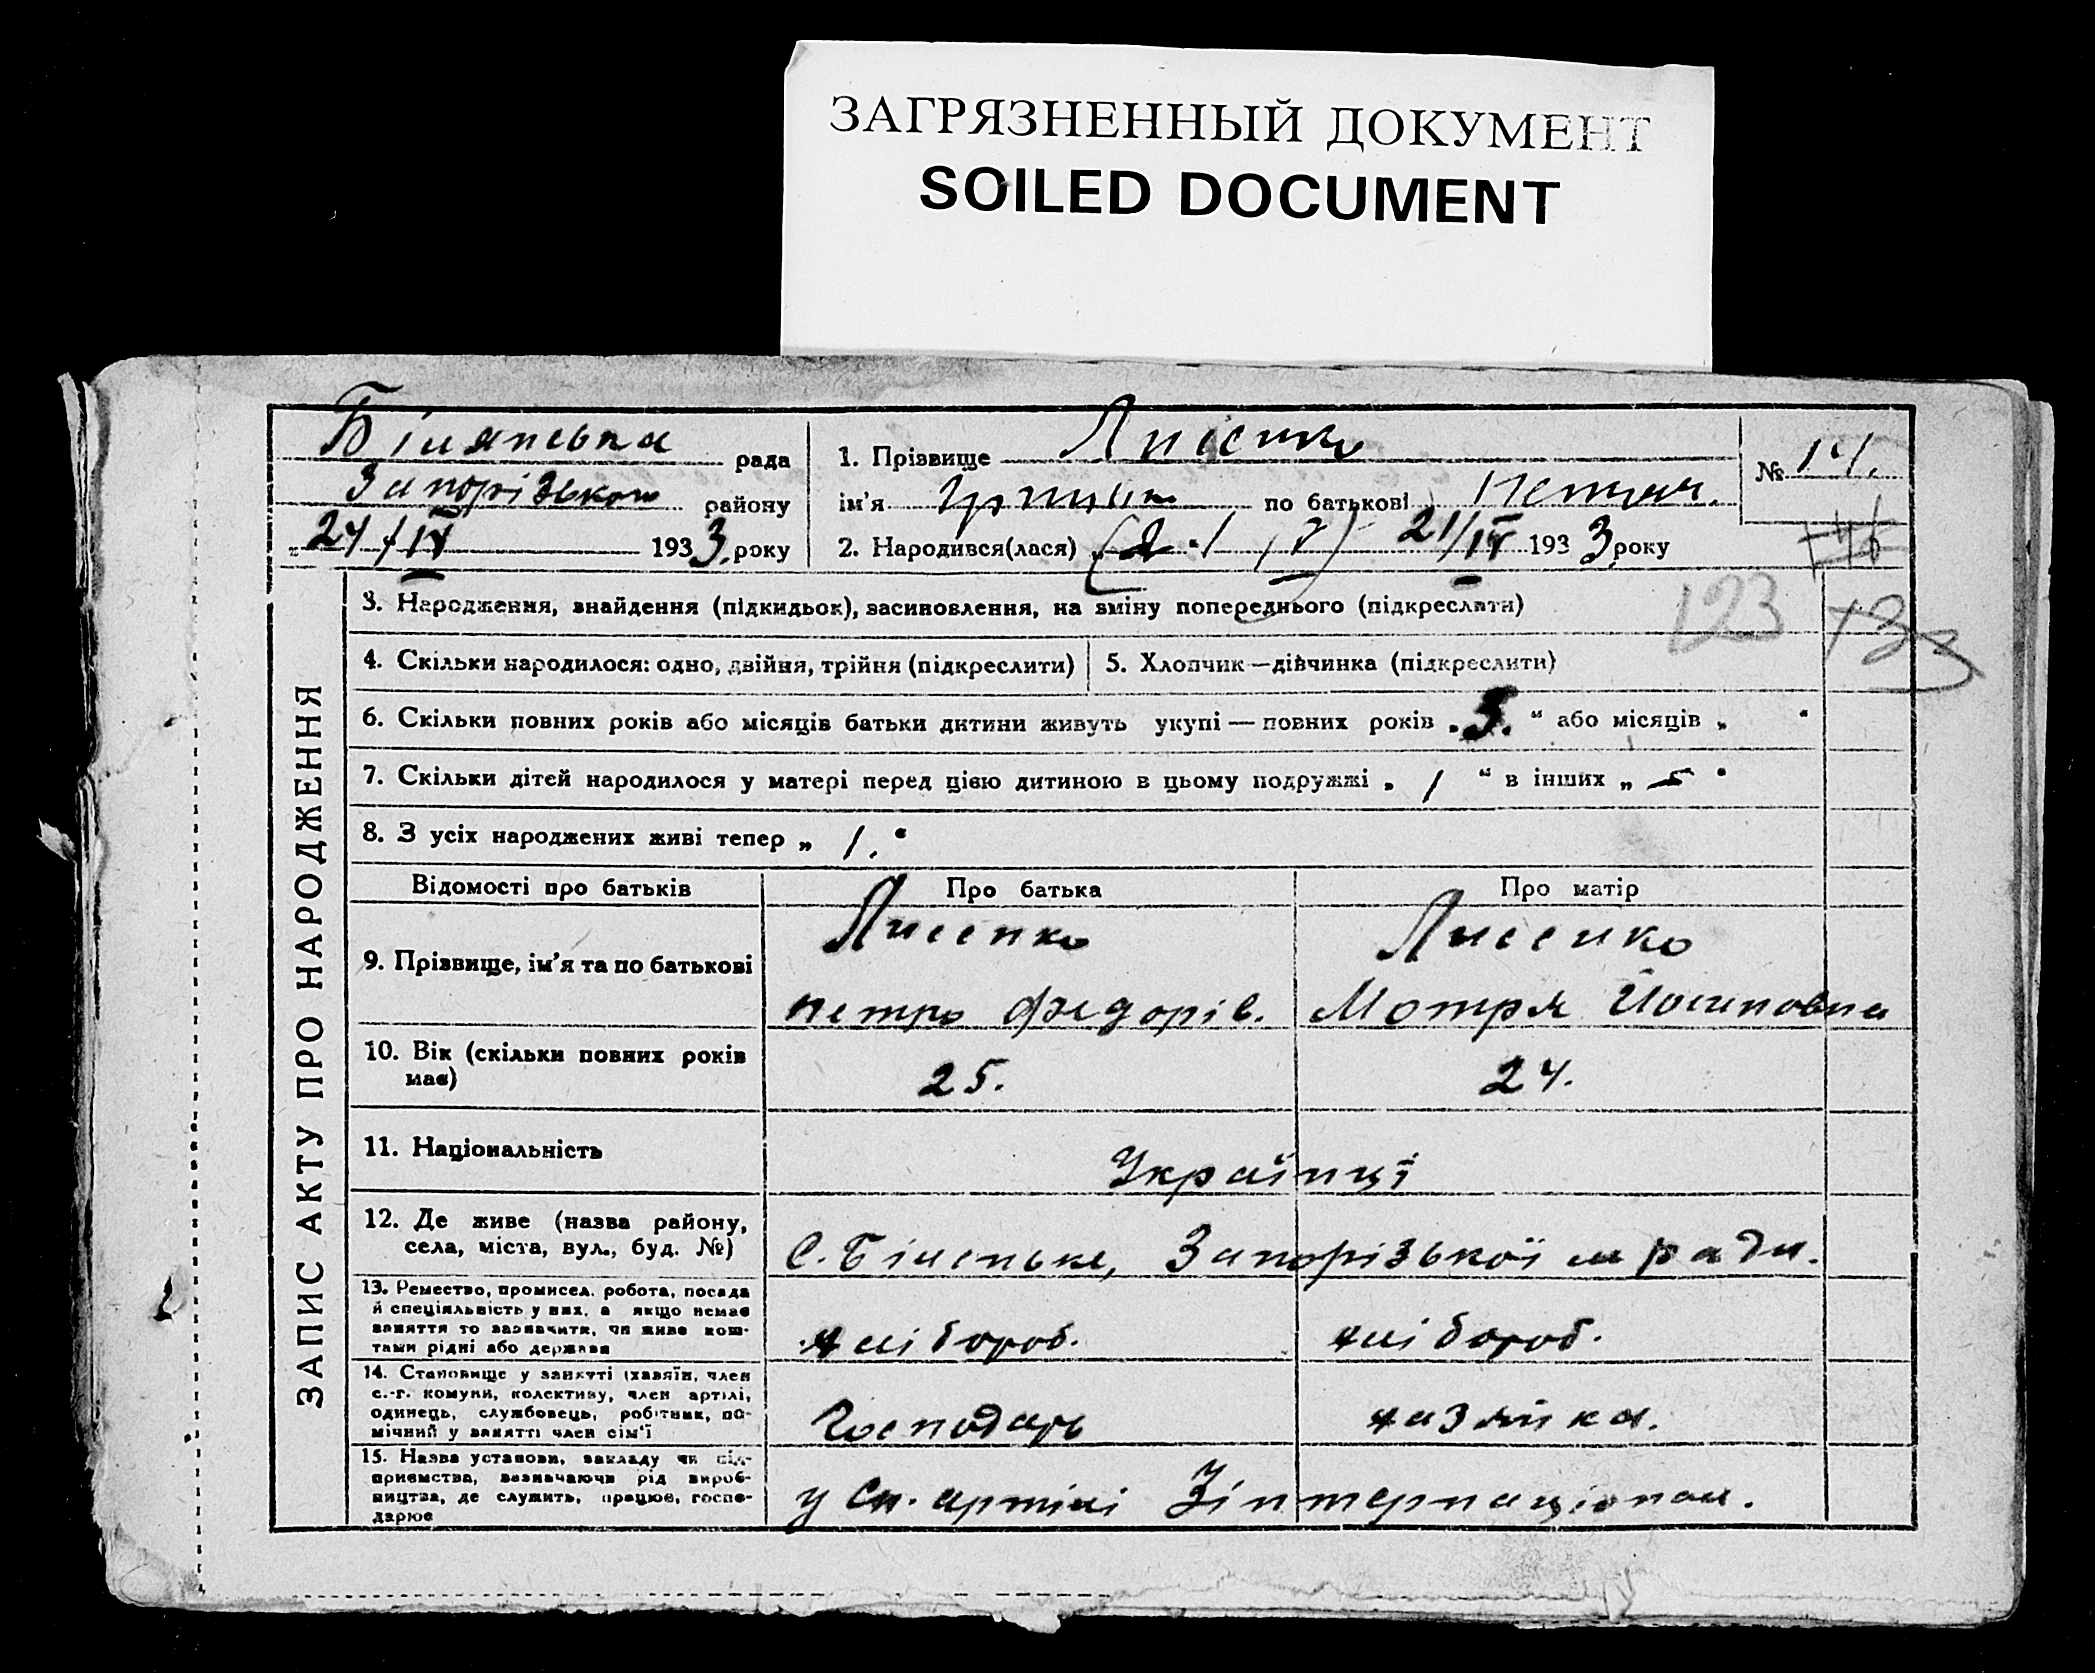 ЗАГРЯЗНЕННЫЙ ДОКУМЕНТ
SOILED DOCUMENT
рада
Запорізького району
24/IV 1933 року
1. Прізвище Лисенко
ім'я Грицько по батькові Петров.
2. Народився(лася) 21/IV 1933 року
№ 14.
123
ЗАПИС АКТУ ПРО НАРОДЖЕННЯ
3. Народження, знайдення (підкидьок), засиновлення, на зміну попереднього (підкреслити)
4. Скільки народилося: одно, двійня, трійня (підкреслити)
5. Хлопчик—дівчинка (підкреслити)
6. Скільки повних років або місяців батьки дитини живуть укупі — повних років „5.“ або місяців „ “
7. Скільки дітей народилося у матері перед цією дитиною в цьому подружжі „ 1 “ в інших „ “
8. З усіх народжених живі тепер „ 1. “
Відомості про батьків
Про батька
Про матір
9. Прізвище, ім'я та по батькові
Лисенко
Петро Федорів.
Лисенко
Мотря Йосиповна
10. Вік (скільки повних років
має)
25.
24.
11. Національність
Українці
12. Де живе (назва району,
села, міста, вул., буд. №)
с. Біленьке, Запорізької м ради.
13. Ремество, промисел. робота, посада
й спеціяльність у них, а якщо немає
заняття то зазначити, чи живе кош-
тами рідні або держава
хлібороб.
хлібороб.
14. Становище у занятті (хазяїн, член
с.-г. комуни, колективу, член артілі,
одинець, службовець, робітник, по-
мічний у занятті член сім'ї
Господарь
хазяйка.
15. Назва установи, закладу чи під-
приємства, зазначаючи рід вироб-
ництва, де служить, працює, госпо-
дарює
у артілі Зінтернаціонал.